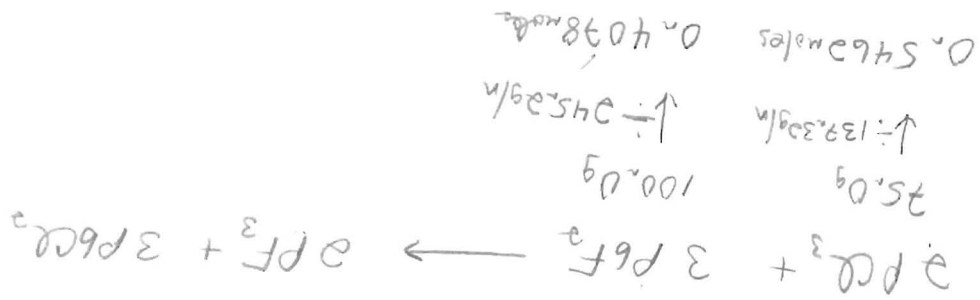 2 PCl₃ + 3 PbF₂ ⟶ 2 PF₃ + 3 PbCl₂
75.0g 100.0g
↓÷137.32g/n ↓÷245.2g/n
0.5462 moles 0.4078 moles